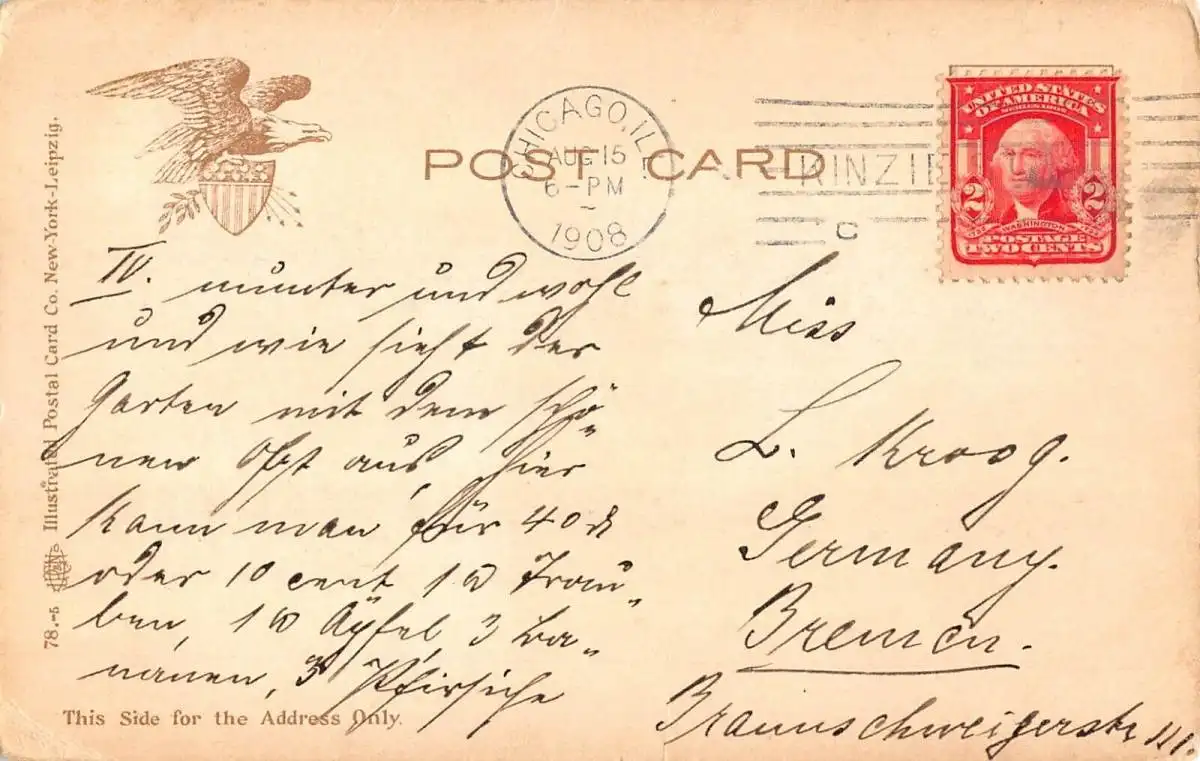 Illustrated Postal Card Co. New-York-Leipzig.
78.-5
POST CARD
CHICAGO, ILL.
AUG 15
6-PM
1908
KINZIE
C
UNITED STATES
OF AMERICA
2 2
WASHINGTON
POSTAGE
TWO CENTS
IV. munter und wohl
und wie sieht der
Garten mit dem schö„
nen Obst aus, hier
kann man für 40 ₰
oder 10 cent 1 ℔ Trau„
ben, 1 ℔ Äpfel, 3 Ba„
nanen, 3 Pfirsiche
This Side for the Address Only.
Miss
L. Kroog.
Germany.
Bremen.
Braunschweigerstr